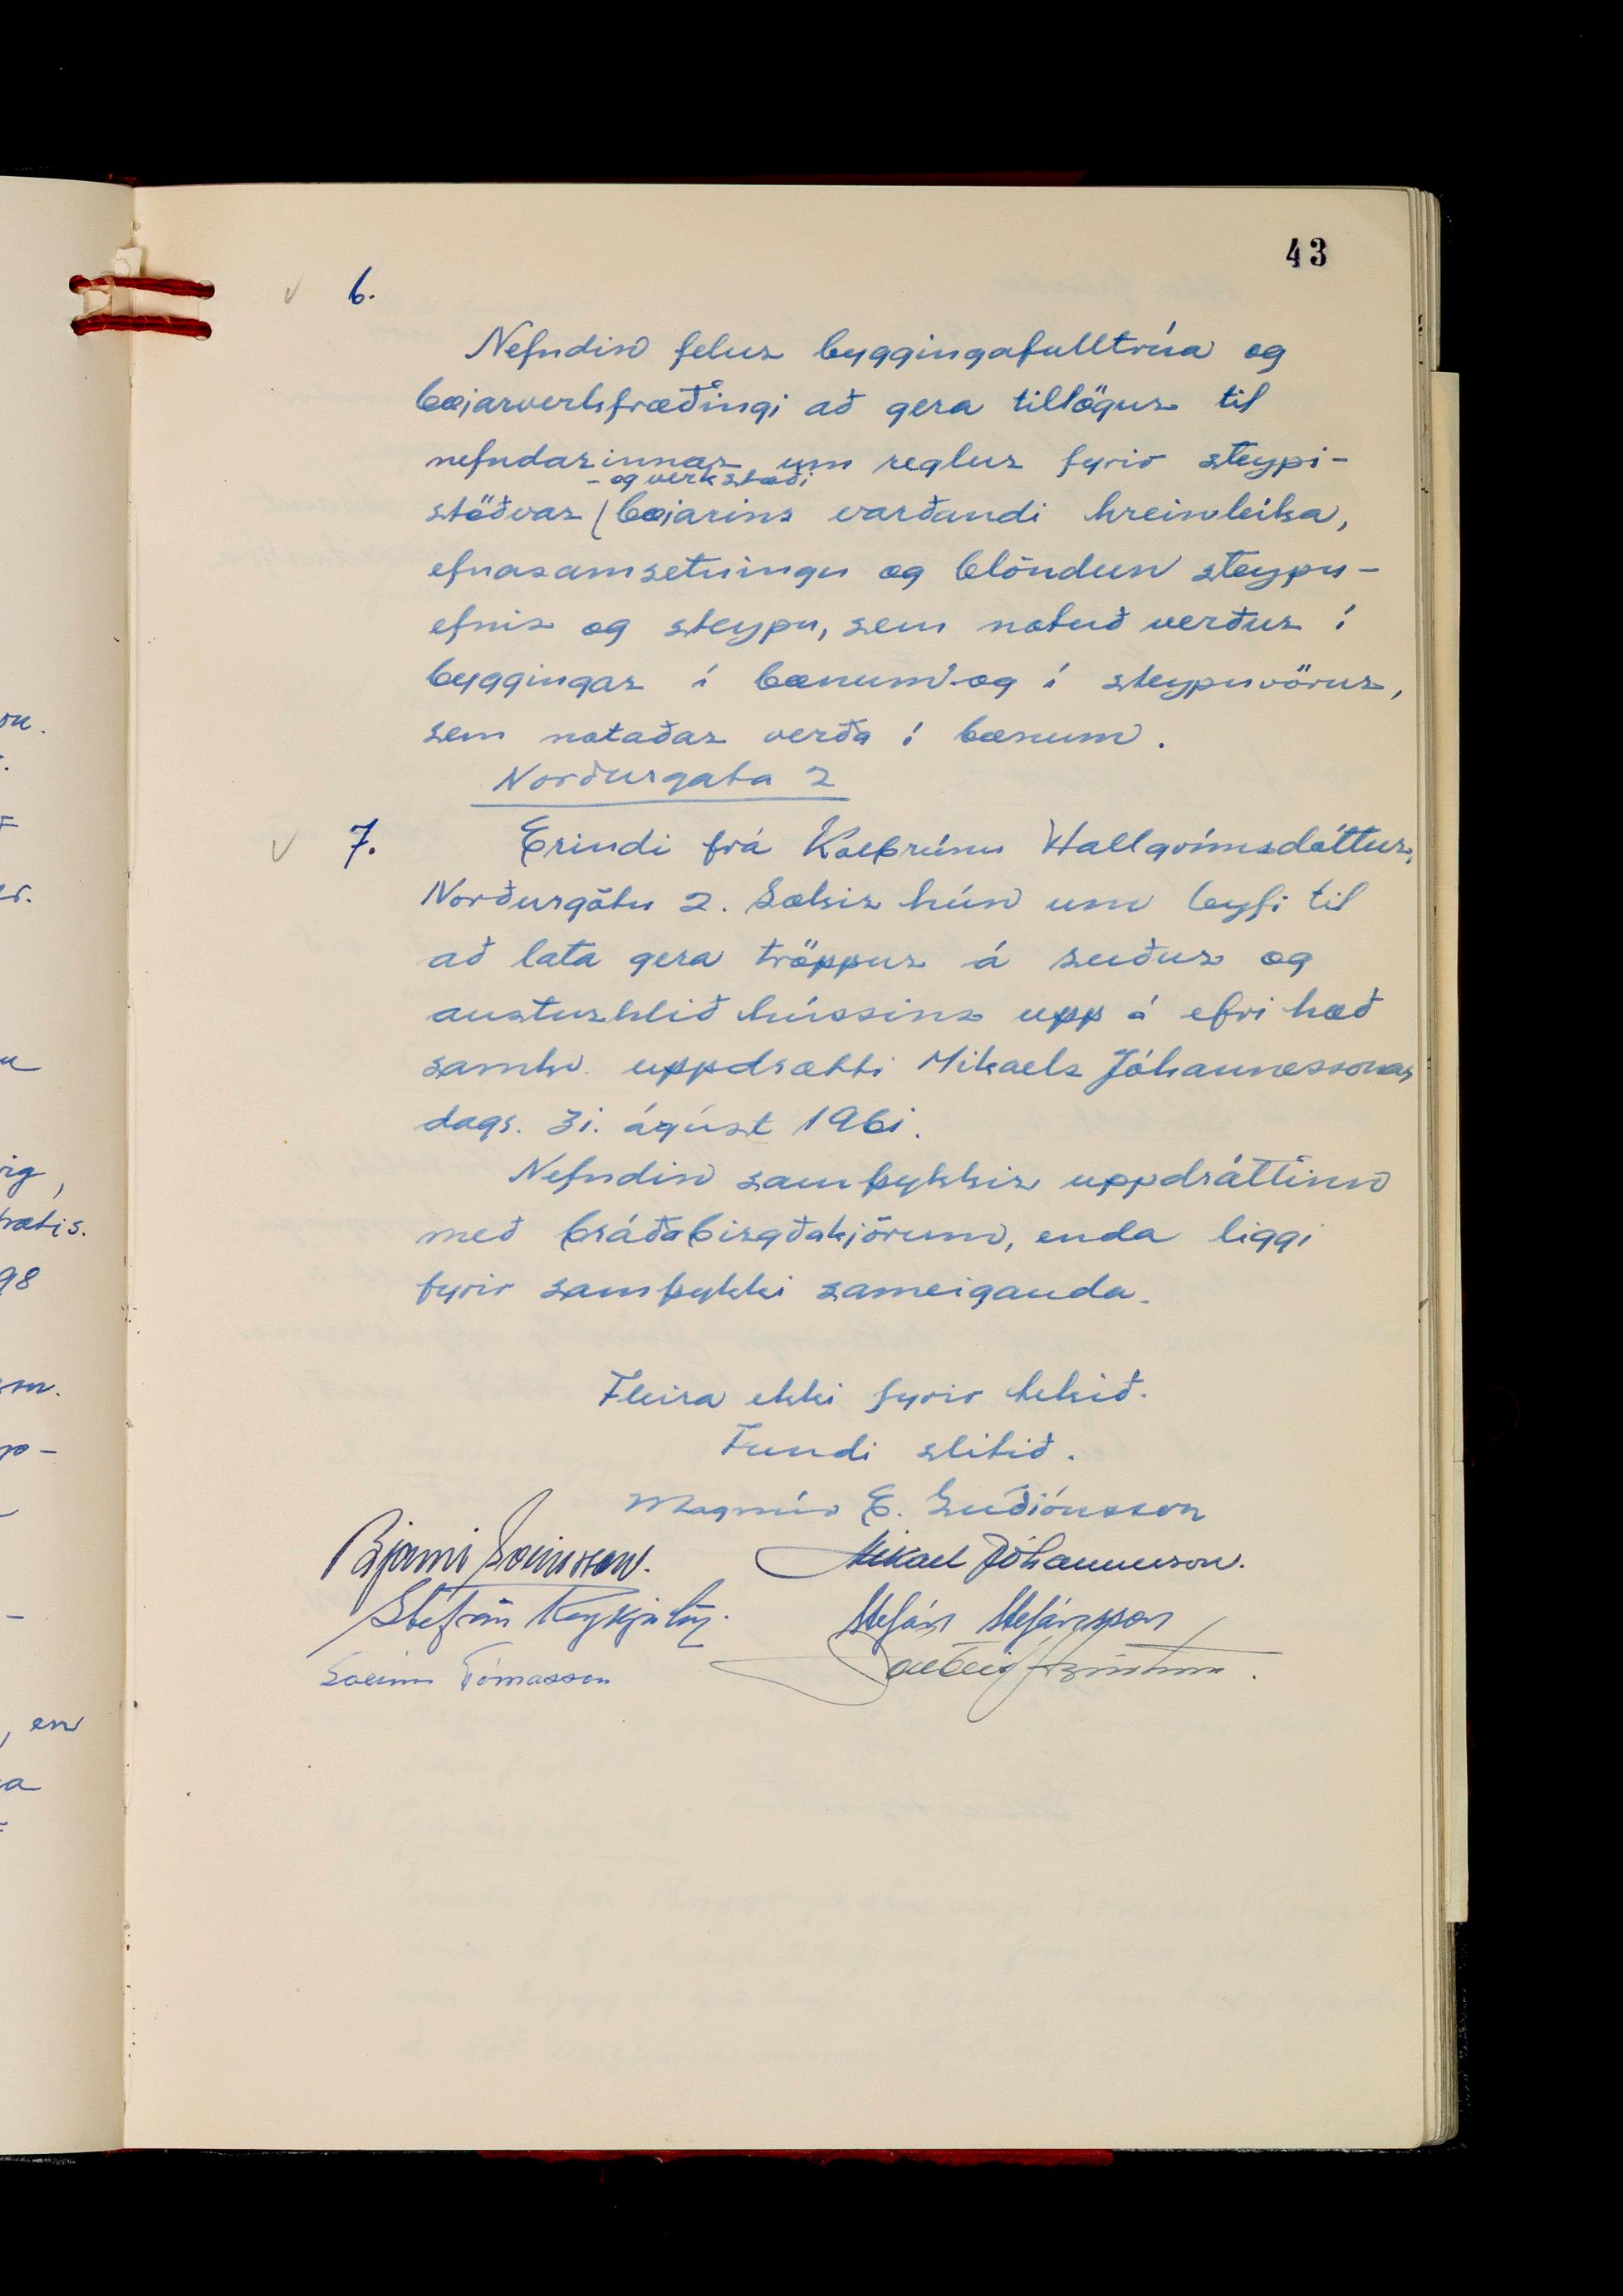 43
6.
Nefndin felur byggingafulltrúa og
bæjarverkfræðingi að gera tillögur til
nefndarinnar um reglur fyrir steypi-
- og verkstæði
stöðvar (bæjarins varðandi hreinleika,
efnasamsetningu og blöndun steypu-
efnis og steypu, sem notuð verður í
byggingar í bænum og í steypuvörur,
sem notaðar verða í bænum.
Norðurgata 2
7. Erindi frá Kolbrúnu Hallgrímsdóttur,
Norðurgötu 2. Sækir hún um leyfi til
að láta gera tröppur á suður og
austurhlið hússins upp á efri hæð
samkv. uppdrætti Mikaels Jóhannessonar
dags. 31. ágúst 1961.
Nefndin samþykkir uppdráttinn
með bráðabirgðakjörum, enda liggi
fyrir samþykki sameiganda.
Fleira ekki fyrir tekið.
Fundi slitið.
Magnús E. Guðjónsson
Bjarni Sveinsson. Mikael Jóhannesson.
Stefán Reykjalín. Stefán Stefánsson
Sveinn Tómasson
on.
ig,
98
sm.
, en
a